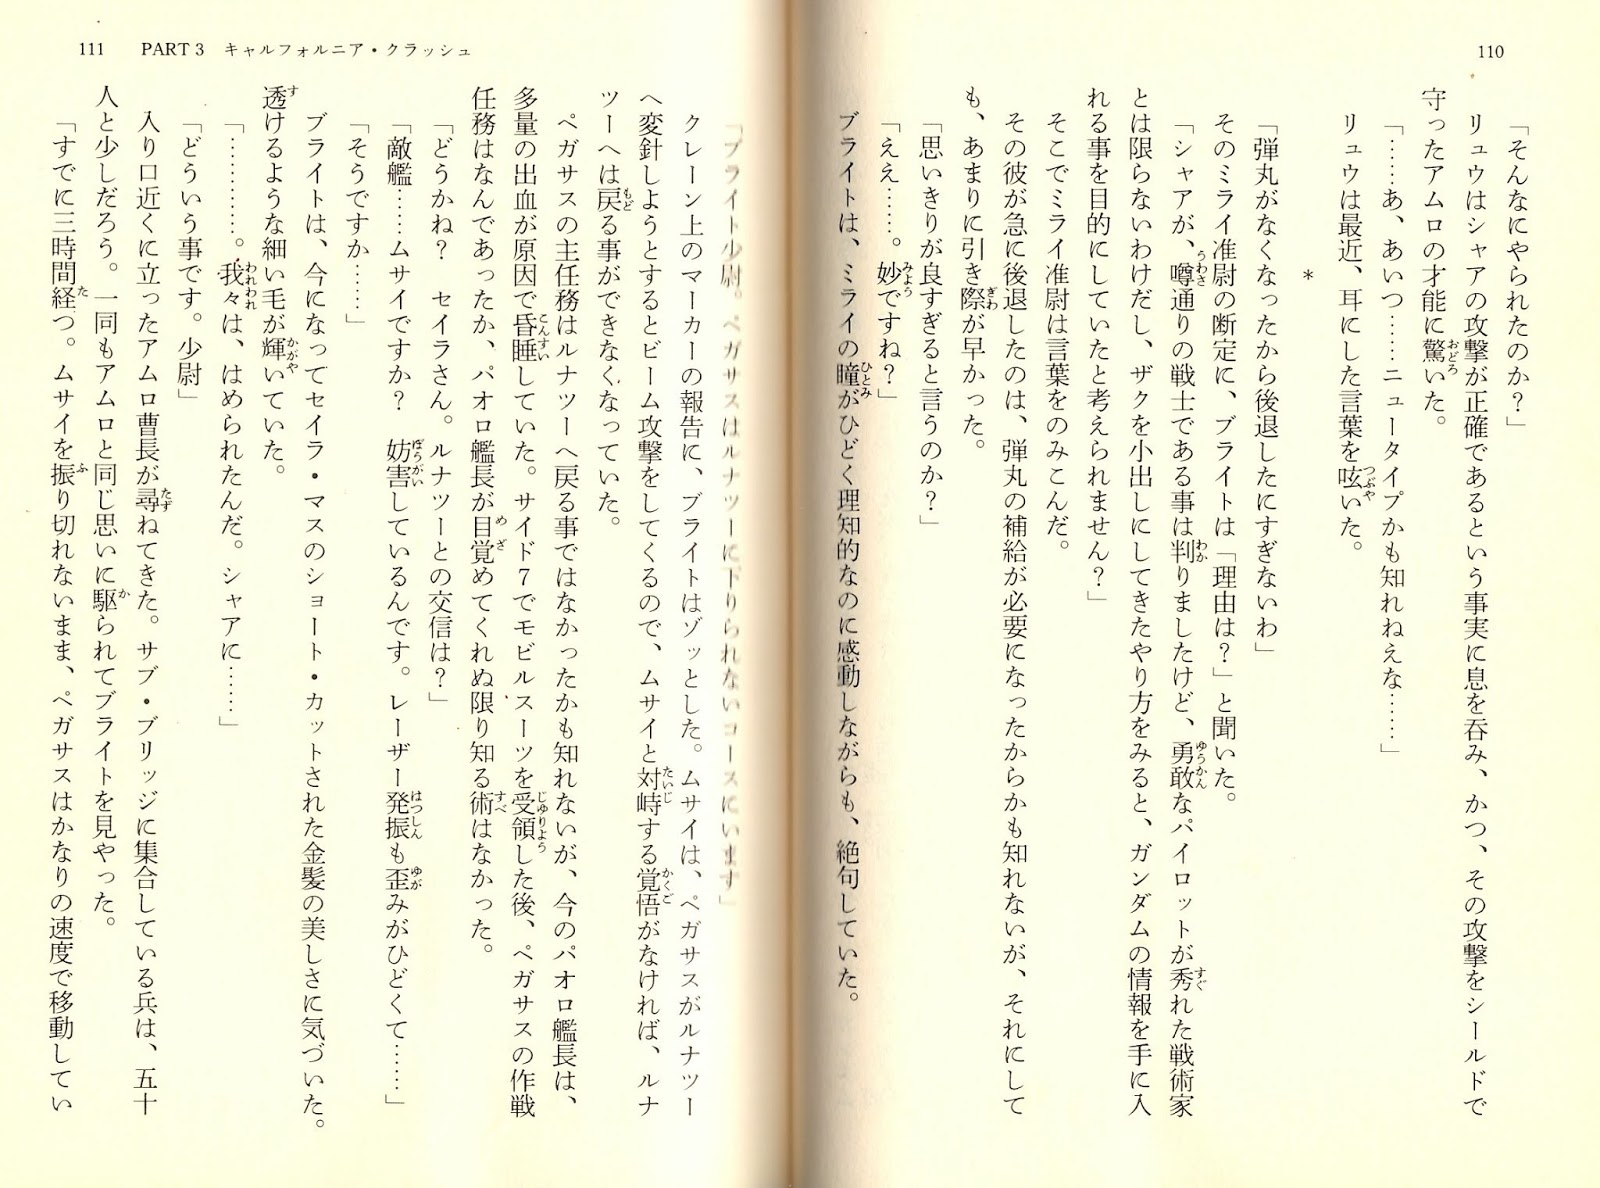 110
「そんなにやられたのか？」
リュウはシャアの攻撃が正確であるという事実に息を呑み、かつ、その攻撃をシールドで
守ったアムロの才能に驚いた。
「……あ、あいつ……ニュータイプかも知れねえな……」
リュウは最近、耳にした言葉を呟いた。
*
「弾丸がなくなったから後退したにすぎないわ」
そのミライ准尉の断定に、ブライトは「理由は？」と聞いた。
「シャアが、噂通りの戦士である事は判りましたけど、勇敢なパイロットが秀れた戦術家
とは限らないわけだし、ザクを小出しにしてきたやり方をみると、ガンダムの情報を手に入
れる事を目的にしていたと考えられません？」
そこでミライ准尉は言葉をのみこんだ。
その彼が急に後退したのは、弾丸の補給が必要になったからかも知れないが、それにして
も、あまりに引き際が早かった。
「思いきりが良すぎると言うのか？」
「ええ……。妙ですね？」
ブライトは、ミライの瞳がひどく理知的なのに感動しながらも、絶句していた。
111 PART 3 キャルフォルニア・クラッシュ
「ブライト少尉。ペガサスはルナツーに下りられないコースにいます」
クレーン上のマーカーの報告に、ブライトはゾッとした。ムサイは、ペガサスがルナツー
へ変針しようとするとビーム攻撃をしてくるので、ムサイと対峙する覚悟がなければ、ルナ
ツーへは戻る事ができなくなっていた。
ペガサスの主任務はルナツーへ戻る事ではなかったかも知れないが、今のパオロ艦長は、
多量の出血が原因で昏睡していた。サイド7でモビルスーツを受領した後、ペガサスの作戦
任務はなんであったか、パオロ艦長が目覚めてくれぬ限り知る術はなかった。
「どうかね？　セイラさん。ルナツーとの交信は？」
「敵艦……ムサイですか？　妨害しているんです。レーザー発振も歪みがひどくて……」
「そうですか……」
ブライトは、今になってセイラ・マスのショート・カットされた金髪の美しさに気づいた。
透けるような細い毛が輝いていた。
「…………。我々は、はめられたんだ。シャアに……」
「どういう事です。少尉」
入り口近くに立ったアムロ曹長が尋ねてきた。サブ・ブリッジに集合している兵は、五十
人と少しだろう。一同もアムロと同じ思いに駆られてブライトを見やった。
「すでに三時間経つ。ムサイを振り切れないまま、ペガサスはかなりの速度で移動してい